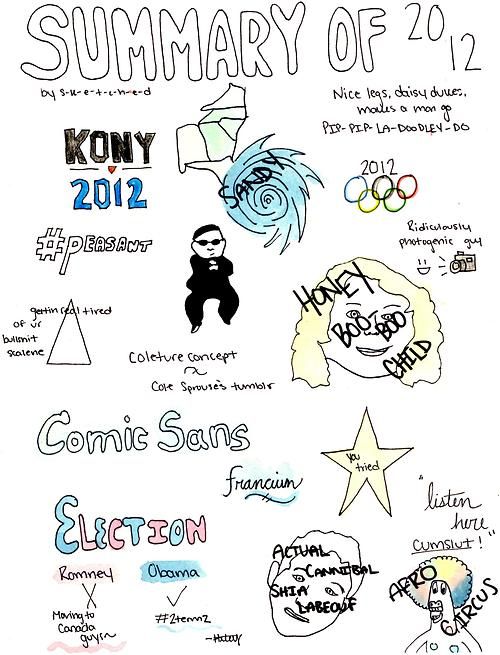 SUMMARY OF 2012
by s-k-e-t-c-h-e-d
Nice legs, daisy dukes,
makes a man go
PIP-PIP-LA-DOODLEY-DO
KONY
2012
SANDY
2012
#PEASANT
Ridiculously
photogenic guy
gettin real tired
of ur
bullshit
scalene
HONEY
BOO-BOO
CHILD
Coleture concept
Cole Sprouse's tumblr
Comic Sans
you
tried
francium
"listen
here
cumslut!"
ELECTION
Romney
Obama
Moving to
Canada
guys~
#2termz
ACTUAL
CANNIBAL
SHIA
LABEOUF
AFRO
CIRCUS